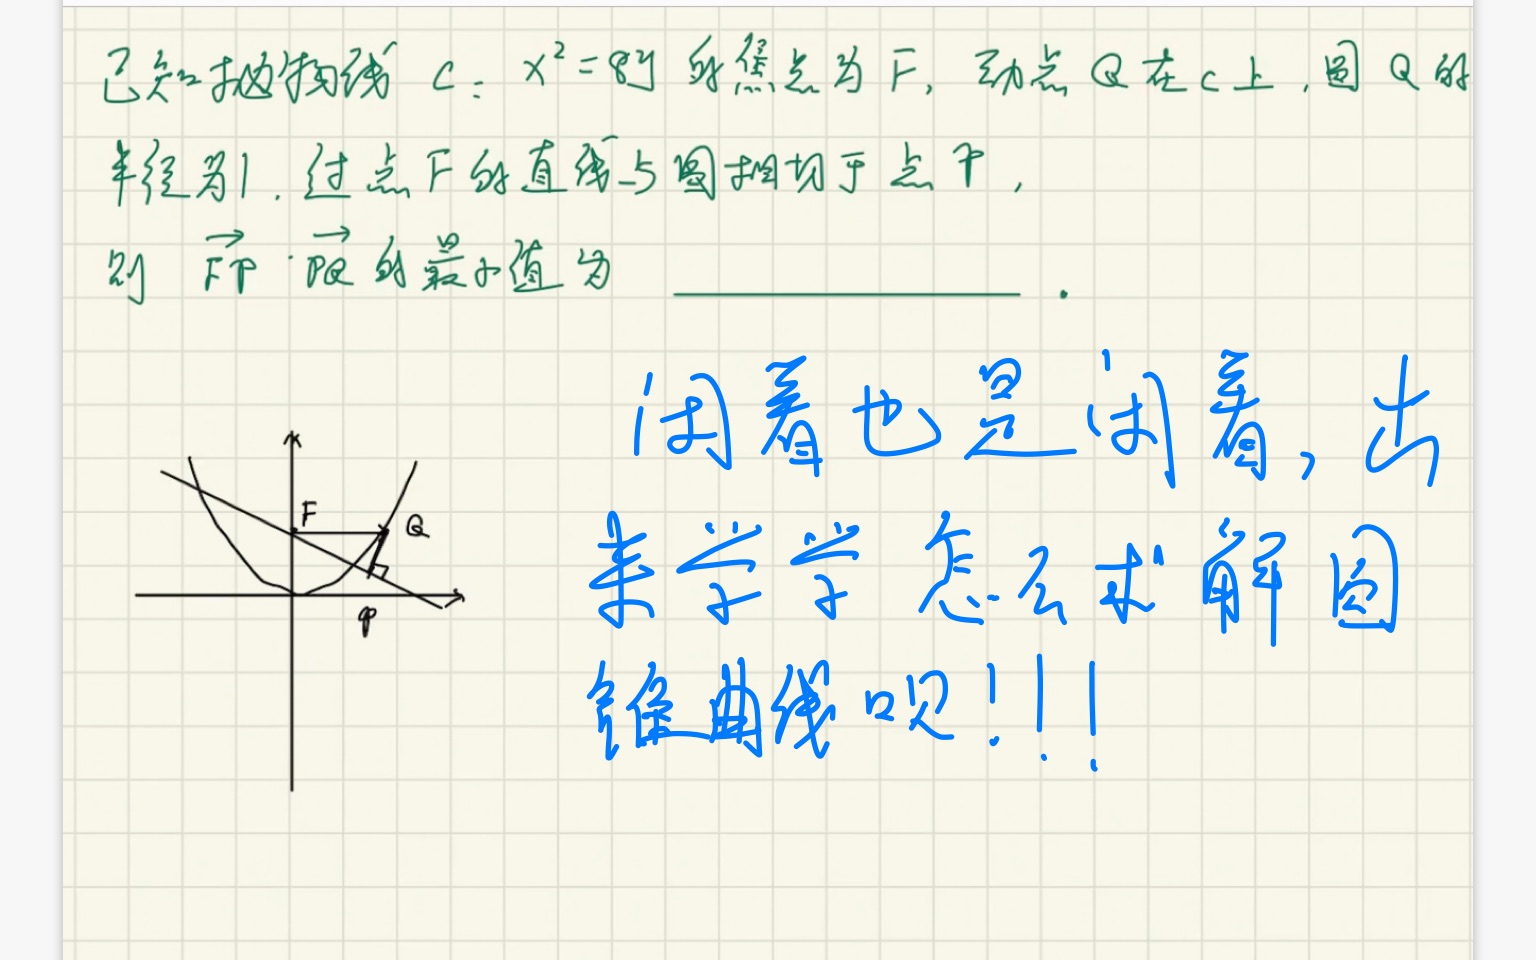 已知抛物线 C: x²=8y 的焦点为F, 动点Q在C上,圆Q的
半径为1.过点F的直线与圆相切于点P,
则 →FP·→PQ的最小值为 ______ .
闲着也是闲着,出
来学学怎么求解圆
锥曲线呗!!!
F
Q
P